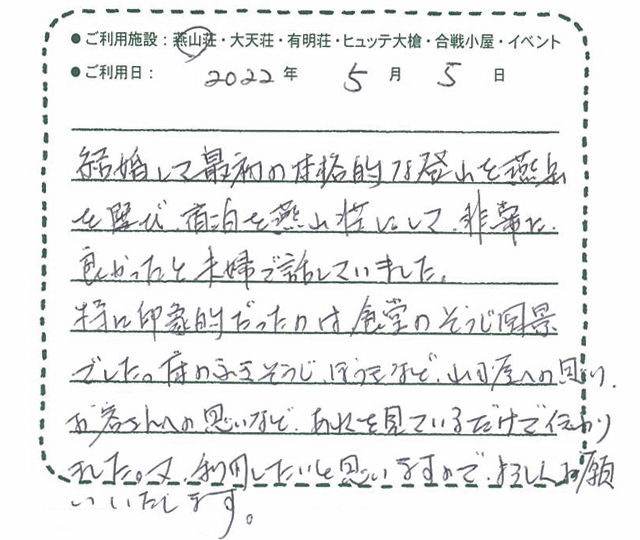 ●ご利用施設：燕山荘・大天荘・有明荘・ヒュッテ大槍・合戦小屋・イベント
●ご利用日： 2022 年 5 月 5 日
結婚して最初の本格的な登山を燕岳
を選び、宿泊を燕山荘にして、非常に
良かったと夫婦で話していました。
特に印象的だったのは食堂のそうじ風景
でした。床のふきそうじ、ほうきなど、山小屋への思い、
お客さんへの思いなど、あれを見ているだけで伝わり
ました。又、利用したいと思いますので、よろしくお願
いいたします。